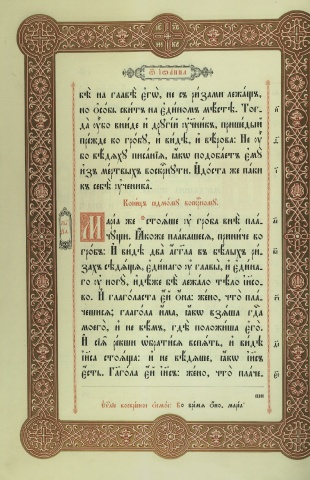 Ѿ ІѠАННА
бѣ̀ на главѣ̀ є҆гѡ̀, не съ ри́зами лежа́щь,
но ѻ҆со́бь сви́тъ на є҆ди́номъ мѣ́стѣ. Тогда̀
ᲂу҆̀бо вни́де и҆ дрꙋгі́й ᲂу҆чн҃къ, прише́дый
пре́жде ко гро́бꙋ, и҆ ви́дѣ, и҆ вѣ́рова: Не ᲂу҆̀
бо вѣ́дѧхꙋ писа́нїѧ, ꙗ҆́кѡ подоба́етъ є҆мꙋ̀
и҆з̾ ме́ртвыхъ воскрⷭ҇нꙋти. И҆до́ста же па́ки
къ себѣ̀ ᲂу҆чн҃ка.
Коне́цъ
Мр҃і́а же стоѧ́ше ᲂу҆ гро́ба внѣ̀ пла́
чꙋщи. Ꙗ҆́коже пла́кашесѧ, прини́че во
гро́бъ: И҆ ви́дѣ два̀ а҆́гг҃ла въ бѣ́лыхъ ри́
захъ сѣдѧ̑ща, є҆ди́наго ᲂу҆ главы̀, и҆ є҆ди́на
го ᲂу҆ ногꙋ̀, и҆дѣ́же бѣ̀ лежа́ло тѣ́ло і҆и҃со
во. И҆ глаго́ласта є҆́й ѻ҆́на: же́но, что̀ пла́
чешисѧ; глаго́ла и҆́ма, ꙗ҆́кѡ взѧ́ша гдⷭ҇а
моего̀, и҆ не вѣ́мъ, гдѣ̀ положи́ша є҆го̀.
И҆ сїѧ̑ ре́кши ѡ҆брати́сѧ вспѧ́ть, и҆ ви́дѣ
і҆и҃са стоѧ́ща: и҆ не вѣ́дѧше, ꙗ҆́кѡ і҆и҃съ
є҆́сть. Гл҃го́ла є҆́й і҆и҃съ: же́но, что̀ пла́че
Во вре́мѧ ѻ҆́но, марі́а